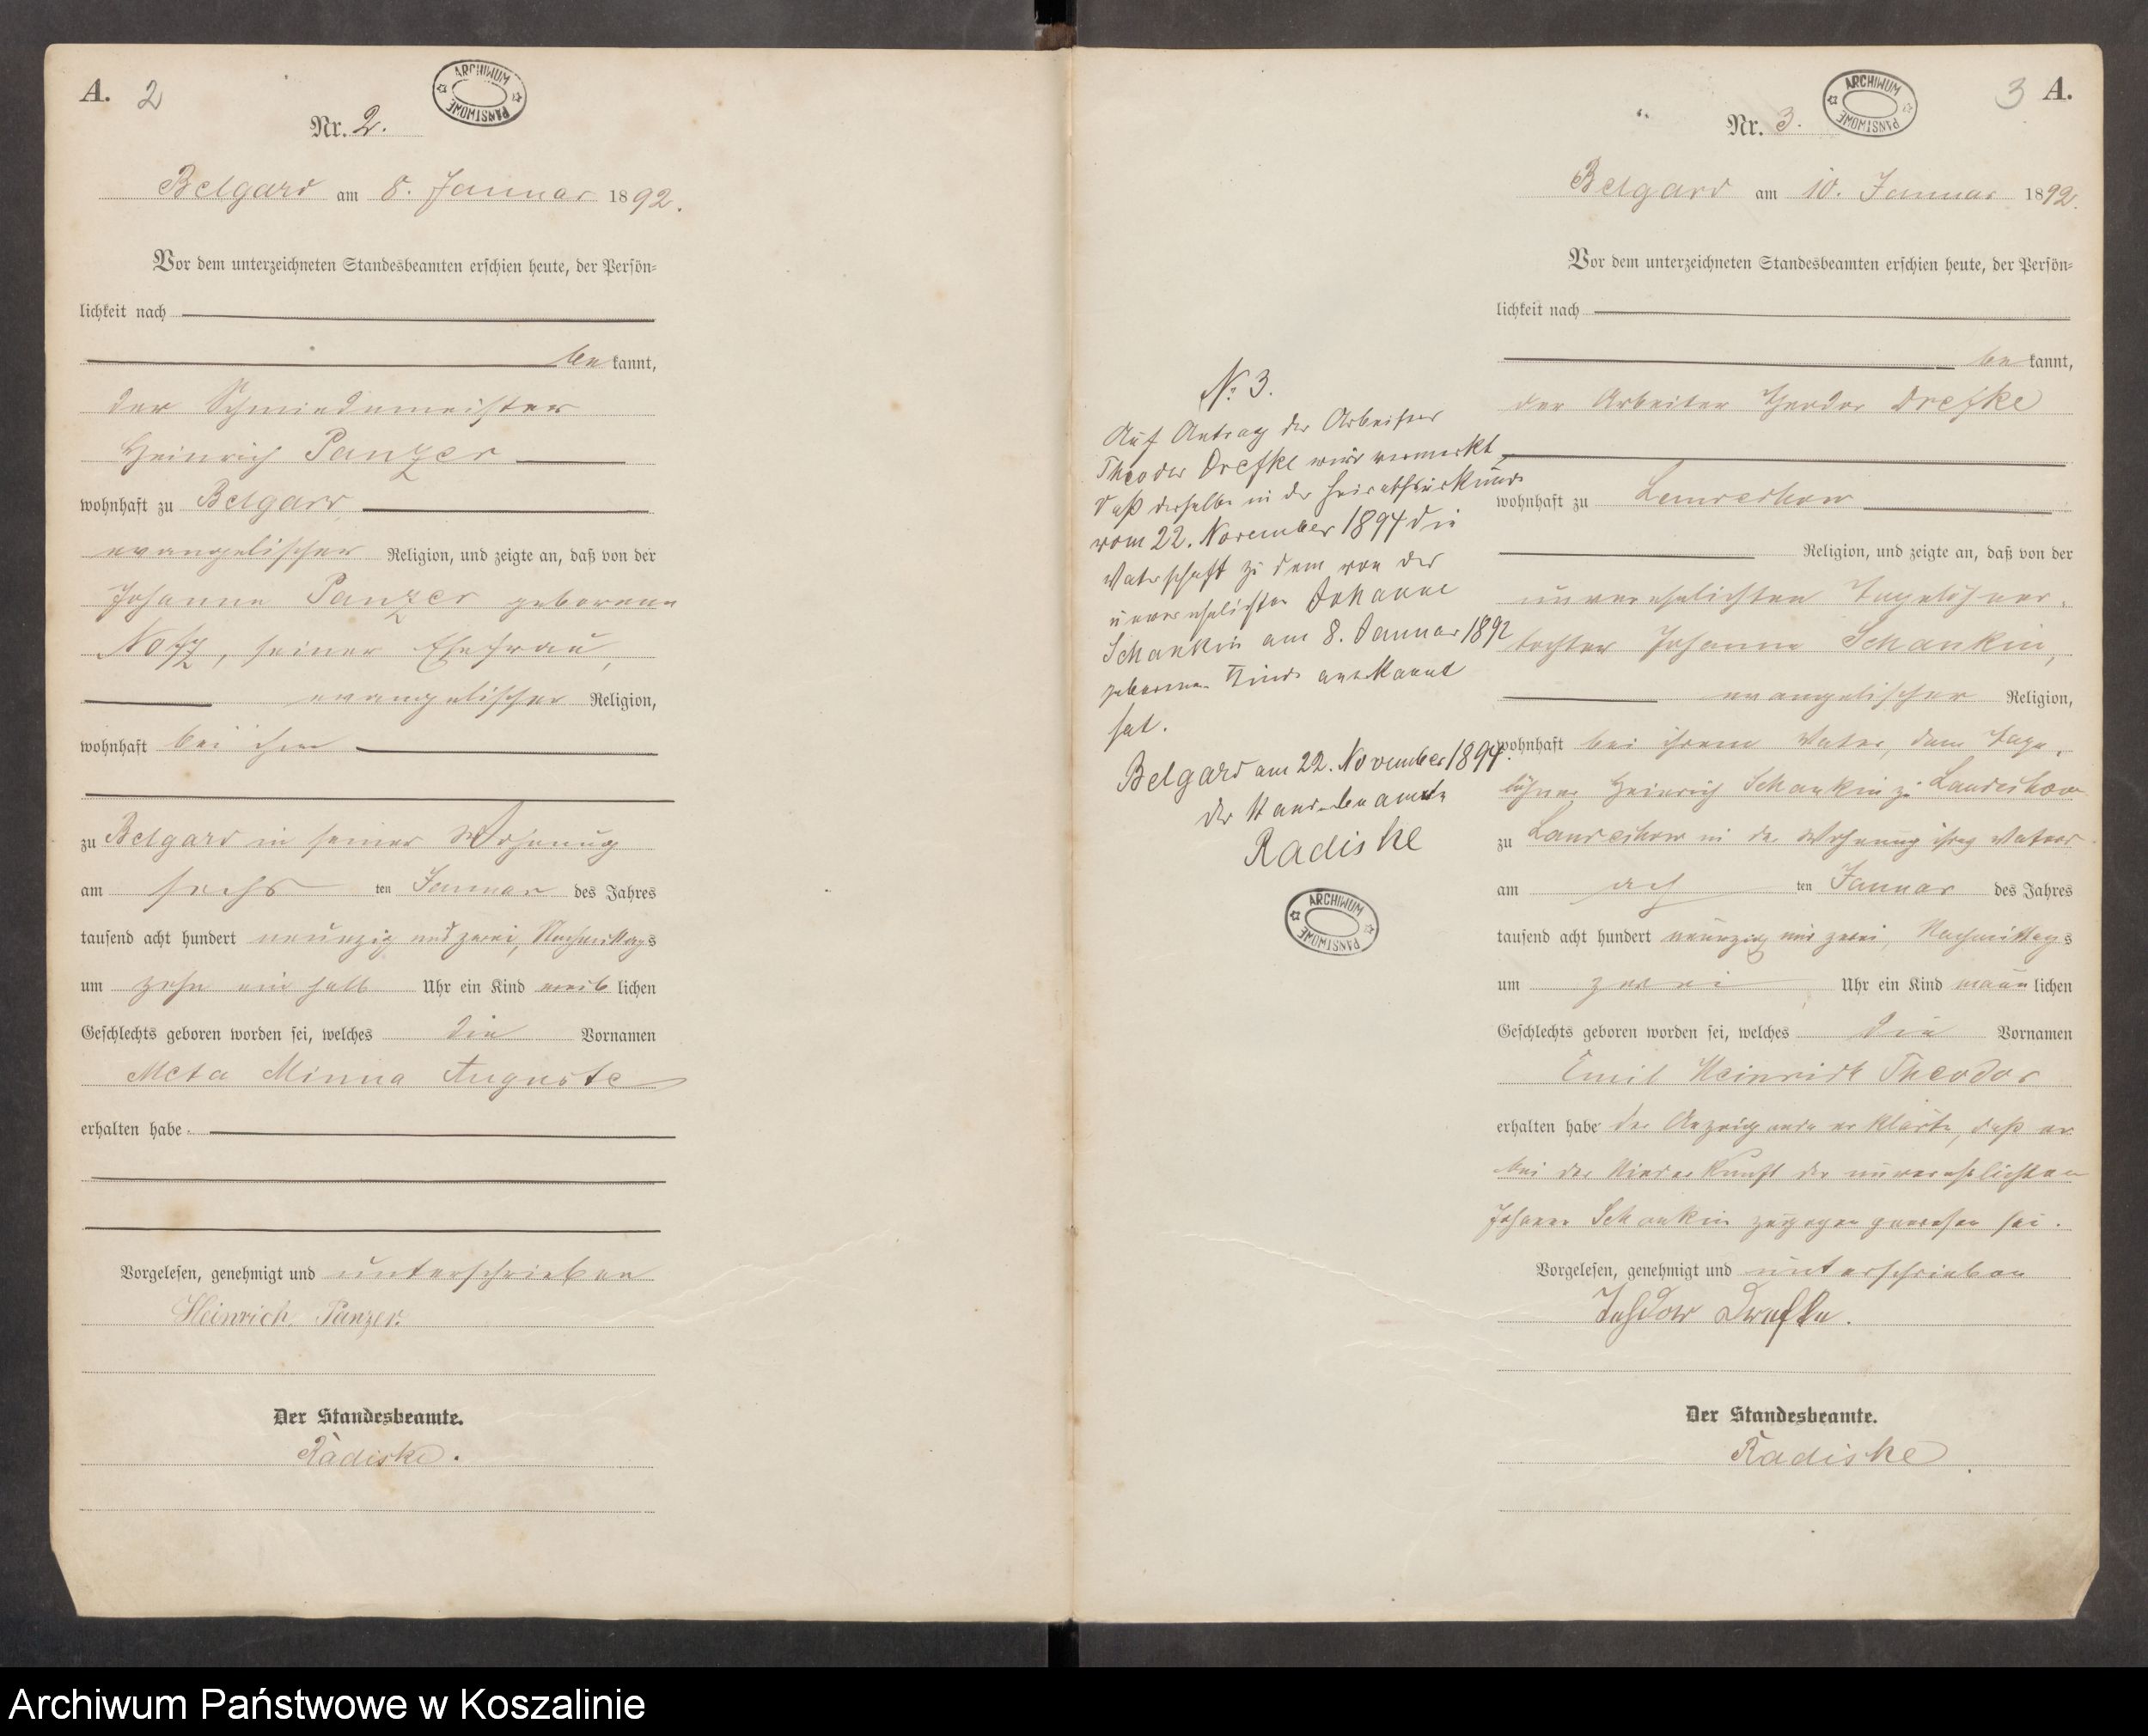 A. 2
ARCHIWUM PAŃSTWOWE
Nr. 2.
Belgard am 8. Januar 1892.
Vor dem unterzeichneten Standesbeamten erschien heute, der Persön=
lichkeit nach
be kannt,
der Schmiedemeister
Heinrich Panzer
wohnhaft zu Belgard
evangelischer Religion, und zeigte an, daß von der
Johanna Panzer geborenen
, seiner Ehefrau,
evangelischer Religion,
wohnhaft bei ihm
zu Belgard in seiner Wohnung
am sechs ten Januar des Jahres
tausend acht hundert neunzig und zwei, Nachmittags
um zehn ein halb Uhr ein Kind weib lichen
Geschlechts geboren worden sei, welches die Vornamen
Meta Minna Auguste
erhalten habe.
Vorgelesen, genehmigt und unterschrieben
Heinrich Panzer.
Der Standesbeamte.
Radiske.
N. 3.
Auf Antrag des Arbeiters
Theodor Drefke wird vermerkt,
daß derselbe in der Heirathsurkunde
vom 22. November 1894 die
Vaterschaft zu dem von der
unverehelichten Johanne
Schankin am 8. Januar 1892
geborenen Kinde anerkannt
hat.
Belgard am 22. November 1894.
Der Standesbeamte
Radiske
ARCHIWUM PAŃSTWOWE
3 A.
ARCHIWUM PAŃSTWOWE
Nr. 3.
Belgard am 10. Januar 1892.
Vor dem unterzeichneten Standesbeamten erschien heute, der Persön=
lichkeit nach
be kannt,
der Arbeiter Theodor Drefke
wohnhaft zu
Religion, und zeigte an, daß von der
unverehelichten Tagelöhner-
tochter Johanna Schankin,
evangelischer Religion,
wohnhaft bei ihrem Vater, dem Tage-
löhner Heinrich Schankin zu
zu in der Wohnung ihres Vaters
am ach ten Januar des Jahres
tausend acht hundert neunzig und zwei, Nachmittags
um zwei Uhr ein Kind männ lichen
Geschlechts geboren worden sei, welches die Vornamen
Emil Heinrich Theodor
erhalten habe. Der Anzeigende erklärte, daß er
bei der Niederkunft der unverehelichten
Johanna Schankin zugegen gewesen sei.
Vorgelesen, genehmigt und unterschrieben
Drefke.
Der Standesbeamte.
Radiske
Archiwum Państwowe w Koszalinie